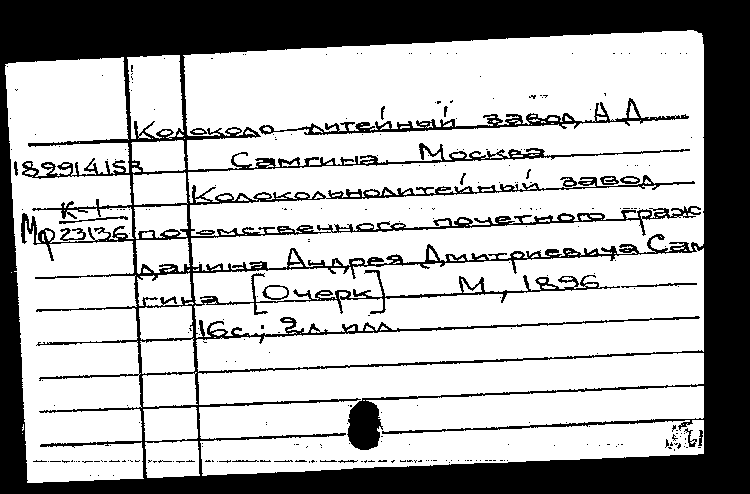 Колоколо литейный завод А Д
182914.153 Самгина. Москва.
Колокольнолитейный завод
К-1
Мф 23136 потомственного почетного граж
данина Андрея Дмитриевича Сам
гина [Очерк] М., 1896
16с.; 2л. илл.